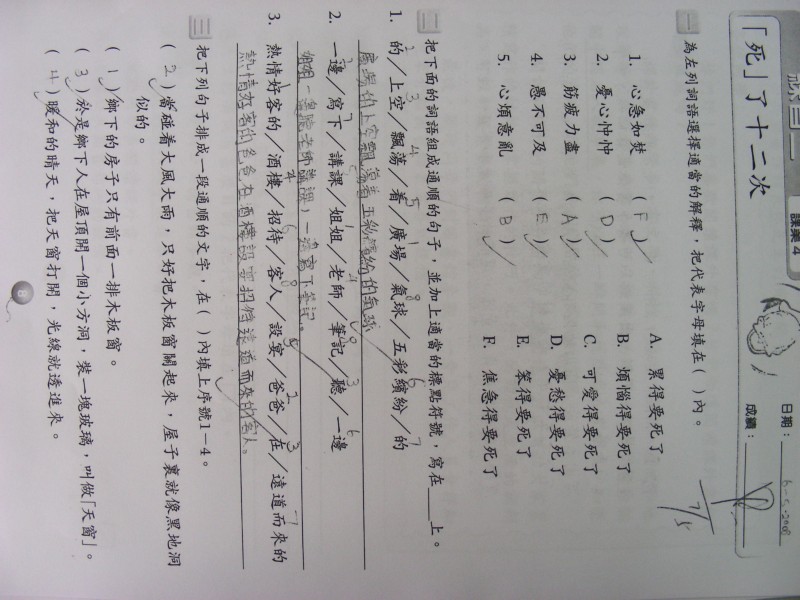 課業4
「死」了十二次
日期：6-5-2008
成績：
一 為左列詞語選擇適當的解釋，把代表字母填在( )內。
1. 心急如焚 ( F )
2. 憂心忡忡 ( D )
3. 筋疲力盡 ( A )
4. 愚不可及 ( E )
5. 心煩意亂 ( B )
A. 累得要死了
B. 煩惱得要死了
C. 可愛得要死了
D. 憂愁得要死了
E. 笨得要死了
F. 焦急得要死了
二 把下面的詞語組成通順的句子，並加上適當的標點符號，寫在＿＿上。
1. 的／上空／飄蕩／着／廣場／氣球／五彩繽紛／的
廣場的上空飄蕩着五彩繽紛的氣球
2. 一邊／寫下／講課／姐姐／老師／筆記／聽／一邊
姐姐一邊聽老師講課，一邊寫下筆記。
3. 熱情好客的／酒樓／招待／客人／設宴／爸爸／在／遠道而來的
熱情好客的爸爸在酒樓設宴招待遠道而來的客人。
三 把下列句子排成一段通順的文字，在( )內填上序號1-4。
( 2 ) 當碰着大風大雨，只好把木板窗關起來，屋子裏就像黑地洞
似的。
( 1 ) 鄉下的房子只有前面一排木板窗。
( 3 ) 於是鄉下人在屋頂開一個小方洞，裝一塊玻璃，叫做「天窗」。
( 4 ) 暖和的晴天，把天窗打開，光線就透進來。
8